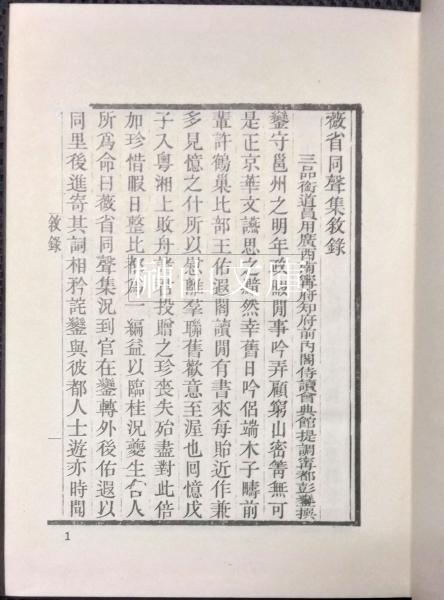 薇省同聲集敘錄
三品銜道員用廣西南寧府知府前內閣侍讀會典館提調寧都彭鑾撰
鑾守邕州之明年政暇閒事吟弄顧窮山密箐無可
是正京華文讌思之黯然幸舊日吟侶端木子疇前
輩許鶴巢比部王佑遐閣讀閒有書來每貽近作兼
多見憶之什所以慰離羣聯舊歡意至渥也回憶戊
子入粵湘上敗舟 投贈之珍喪失殆盡對此倍
加珍惜暇日整比都為一編益以臨桂況夔生舍人
所為命曰薇省同聲集況到官在鑾轉外後佑遐以
同里後進寄其詞相矜詫鑾與彼都人士遊亦時聞
敘錄
一
1